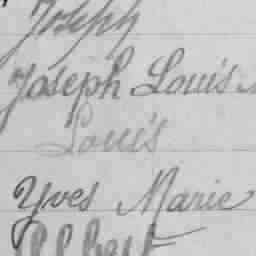 Joseph
Joseph Louis
Louis
Yves Marie
Albert